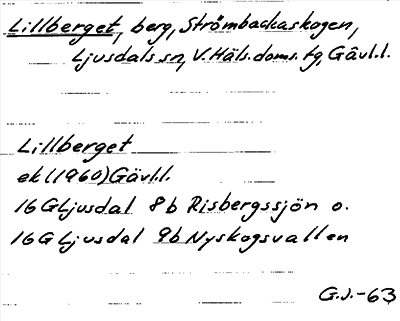 Lillberget, berg, Strömbackaskogen,
Ljusdals sn, V. Häls. doms. tg, Gävl.l.
Lillberget
ek (1960) Gävl.l.
16G Ljusdal 8b Risbergssjön o.
16G Ljusdal 9b Nyskogsvallen
G.J.-63